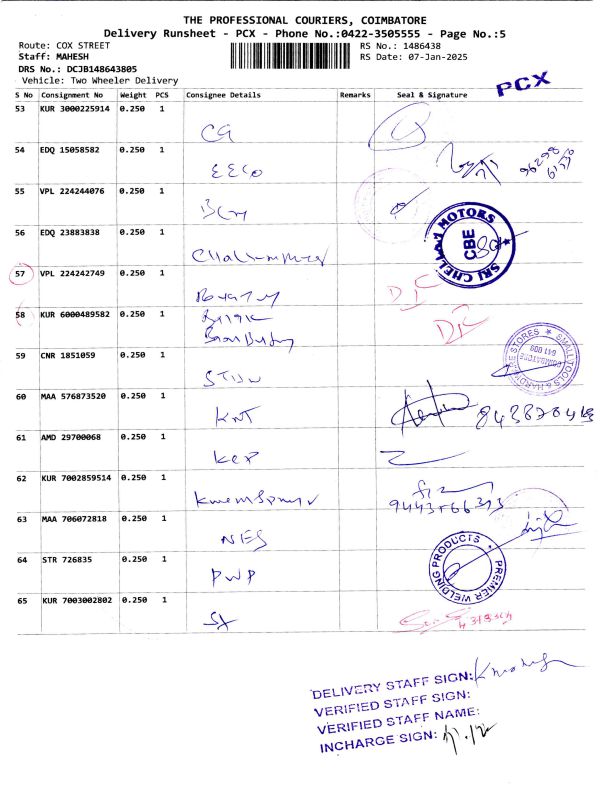 THE PROFESSIONAL COURIERS, COIMBATORE
Delivery Runsheet - PCX - Phone No.:0422-3505555 - Page No.:5
Route: COX STREET
RS No.: 1486438
Staff: MAHESH
RS Date: 07-Jan-2025
DRS No.: DCJB148643805
Vehicle: Two Wheeler Delivery
PCX
S No Consignment No Weight PCS Consignee Details Remarks Seal & Signature
53 KUR 3000225914 0.250 1
CG
54 EDQ 15058582 0.250 1
EECO
96298
61330
55 VPL 224244076 0.250 1
BCM
56 EDQ 23883838 0.250 1
SRI CHELLAM MOTORS
CBE
57 VPL 224242749 0.250 1
D/C
58 KUR 6000489582 0.250 1
D/C
59 CNR 1851059 0.250 1
SMALL TOOLS & HARDWARE STORES
COIMBATORE
641 009
60 MAA 576873520 0.250 1
KNT
61 AMD 29700068 0.250 1
KCP
62 KUR 7002859514 0.250 1
63 MAA 706072818 0.250 1
NES
64 STR 726835 0.250 1
PWP
PREMIER WELDING PRODUCTS
65 KUR 7003002802 0.250 1
SX
DELIVERY STAFF SIGN:
VERIFIED STAFF SIGN:
VERIFIED STAFF NAME:
INCHARGE SIGN: